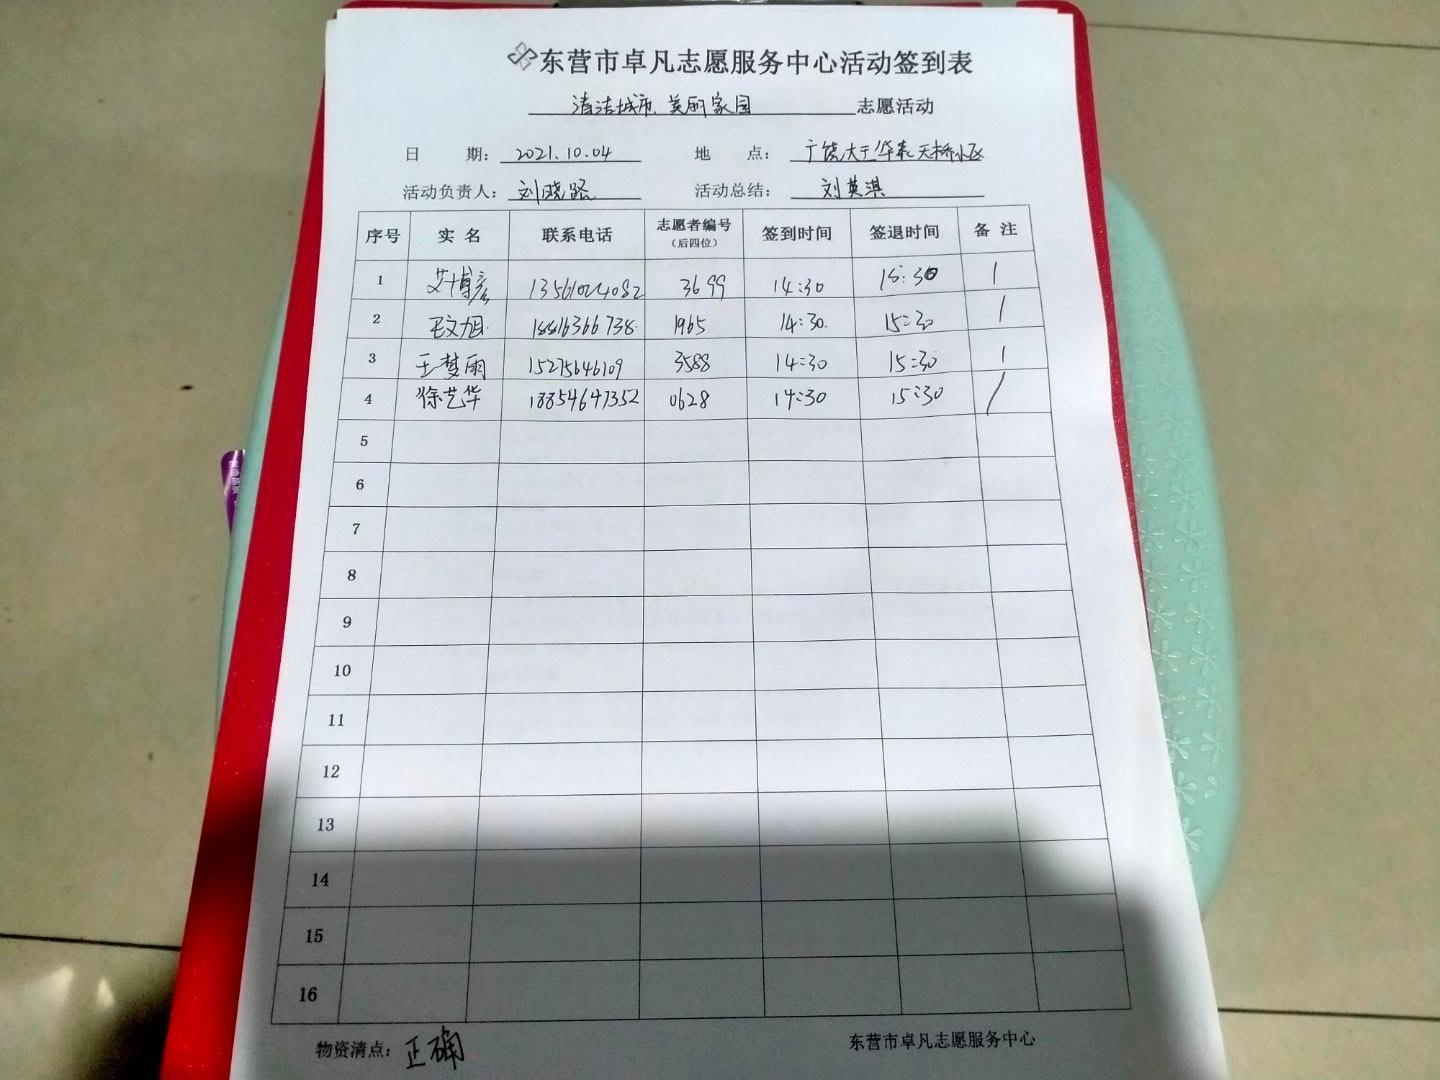 东营市卓凡志愿服务中心活动签到表
清洁城市、美丽家园 志愿活动
日 期: 2021.10.04 地 点: 广饶大王华泰天桥小区
活动负责人: 刘晓路 活动总结: 刘英淇
序号 实名 联系电话 志愿者编号 (后四位) 签到时间 签退时间 备注
1 艾博彦 13561024082 3699 14:30 15:30 /
2 王文旭 18816366738 1965 14:30 15:30 /
3 王梦雨 15275646109 3588 14:30 15:30 /
4 徐艺华 18854647352 0628 14:30 15:30 /
5
6
7
8
9
10
11
12
13
14
15
16
物资清点: 正确 东营市卓凡志愿服务中心